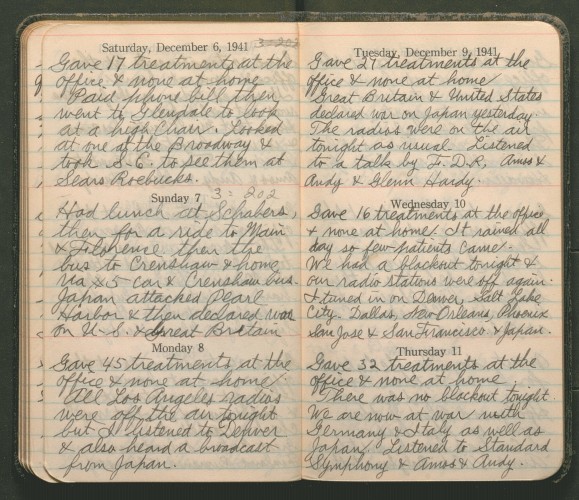 Saturday, December 6, 1941 3-202
Gave 17 treatments at the
office & none at home
Paid phone bill then
went to Glendale to look
at a high chair. Looked
at one at the Broadway &
took S.C. to see them at
Sears Roebucks.
Sunday 7 3=202
Had lunch at Schabers,
then for a ride to Main
& Florence then the
bus to Crenshaw & home
via #5 car & Crenshaw bus.
Japan attacked Pearl
Harbor & then declared war
on U-S. & Great Britain
Monday 8
Gave 45 treatments at the
office & none at home.
All Los Angeles radios
were off the air tonight
but I listened to Denver
& also heard a broadcast
from Japan.
Tuesday, December 9, 1941
Gave 27 treatments at the
office & none at home
Great Britain & United States
declared war on Japan yesterday.
The radios were on the air
tonight as usual. Listened
to a talk by F.D.R, Amos &
Andy & Glenn Hardy.
Wednesday 10
Gave 16 treatments at the office
& none at home. It rained all
day so few patients came.
We had a blackout tonight &
our radio stations were off again.
I tuned in on Denver, Salt Lake
City. Dallas, New Orleans, Phoenix
San Jose & San Francisco & Japan.
Thursday 11
Gave 32 treatments at the
office & none at home
There was no blackout tonight.
We are now at war with
Germany & Italy as well as
Japan. Listened to Standard
Symphony & Amos & Andy.